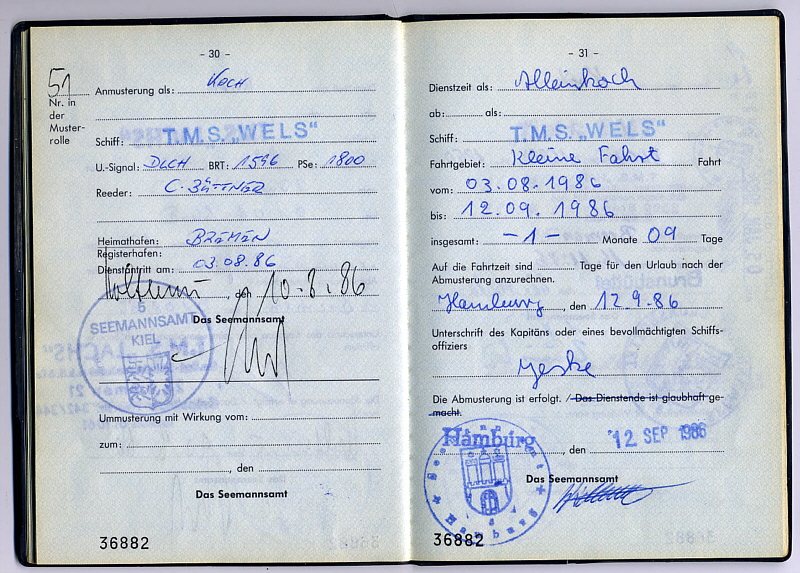 - 30 -
51
Nr. in der Muster-rolle
Anmusterung als: Koch
Schiff: T.M.S. „WELS"
U.-Signal: DLCH BRT: 1596 PSe: 1800
Reeder: C. BÜTTNER
Heimathafen: BREMEN
Registerhafen:
Dienstantritt am: 03.08.86
Holtenau, den 10.8.86
Das Seemannsamt
5
SEEMANNSAMT
KIEL
Ummusterung mit Wirkung vom:
zum:
, den
Das Seemannsamt
36882
- 31 -
Dienstzeit als: Alleinkoch
ab: als:
Schiff: T.M.S. „WELS"
Fahrtgebiet: Kleine Fahrt Fahrt
vom: 03.08.1986
bis: 12.09.1986
insgesamt: -1- Monate 09 Tage
Auf die Fahrtzeit sind Tage für den Urlaub nach der
Abmusterung anzurechen.
Hamburg, den 12.9.86
Unterschrift des Kapitäns oder eines bevollmächtigten Schiffs-
offiziers
Jeske
Die Abmusterung ist erfolgt. / Das Dienstende ist glaubhaft ge-
macht.
Hamburg, den 12 SEP 1986
Das Seemannsamt
Seemannsamt Hamburg
36882